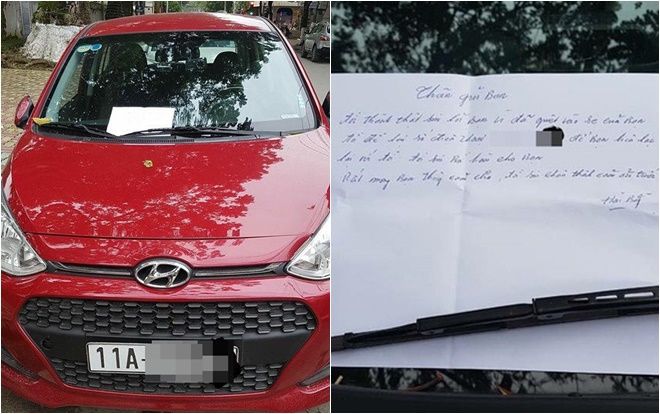 11A-
Thân gửi Bạn
tôi thành thật xin lỗi Bạn vì đã quệt vào xe của Bạn
tôi để lại số điện thoại để Bạn liên lạc
lại với tôi tôi xin
Rất mong Bạn thông cảm cho, tôi xin chân thành cảm ơn